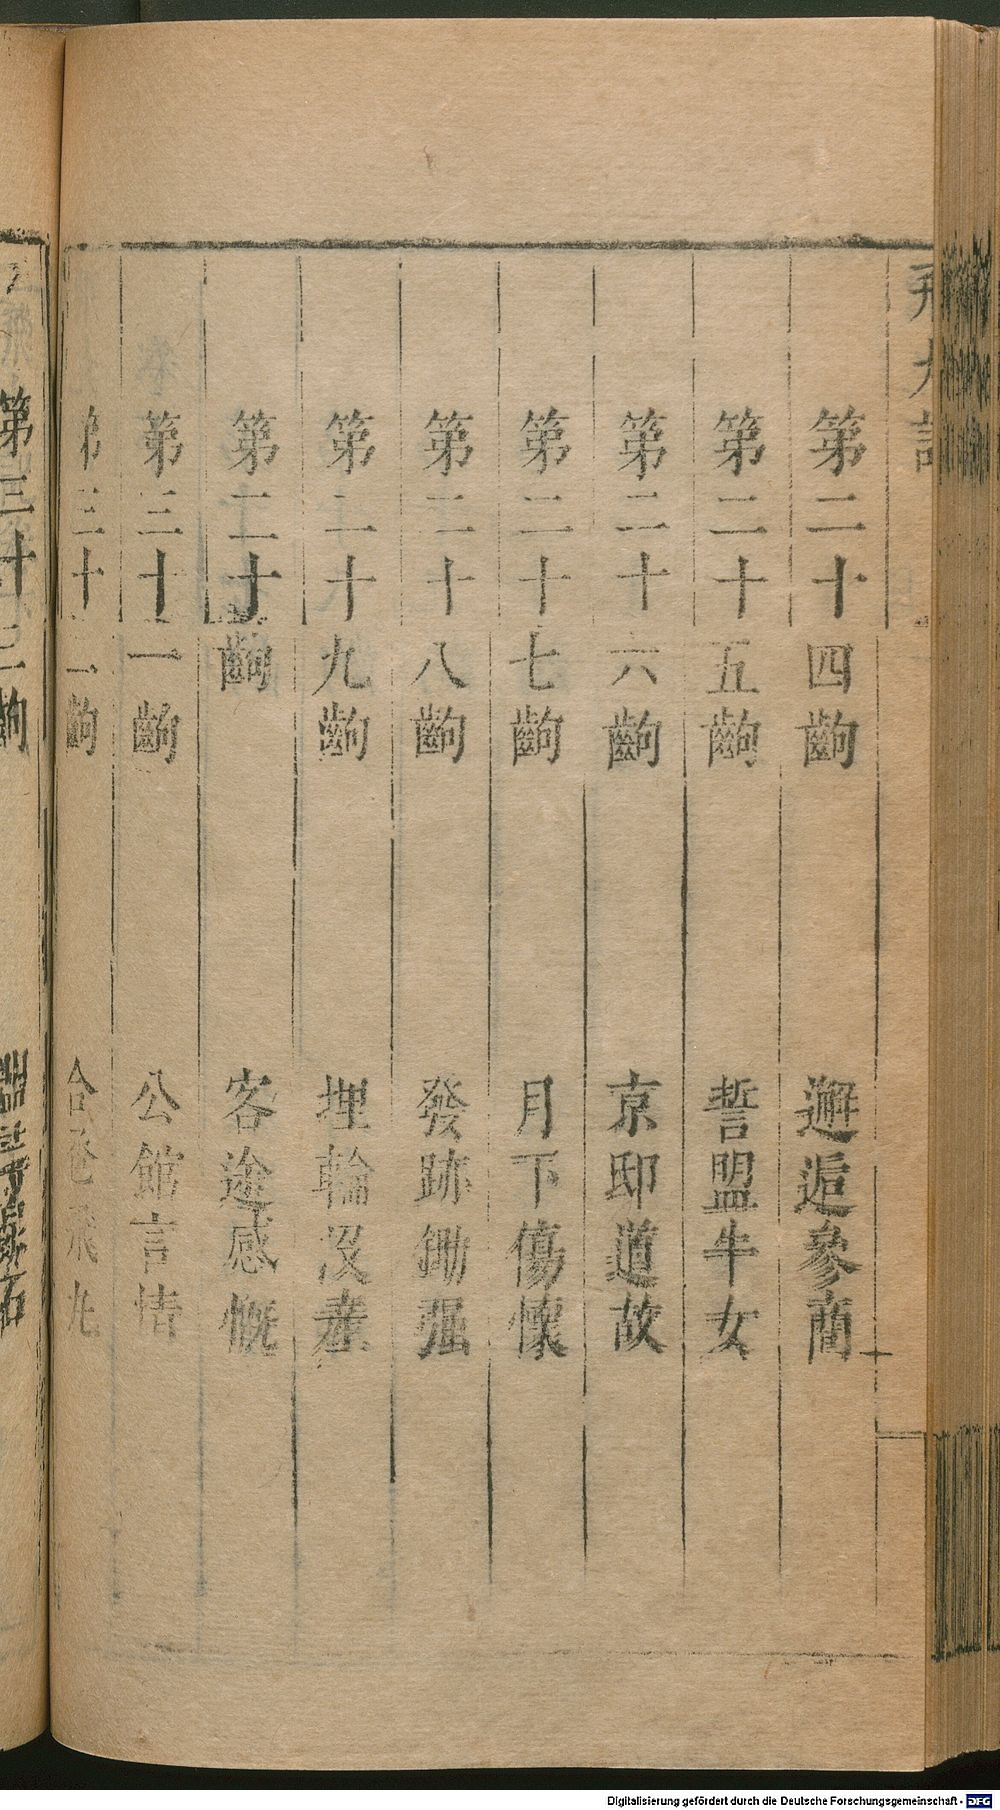 飛丸記
第二十四齣 邂逅參商
第二十五齣 誓盟牛女
第二十六齣 京邸道故
第二十七齣 月下傷懷
第二十八齣 發跡鋤强
第二十九齣 埋輪沒產
第三十齣 客途感慨
第三十一齣 公館言情
第三十二齣 合巹飛丸
第三十三齣
Digitalisierung gefördert durch die Deutsche Forschungsgemeinschaft - DFG